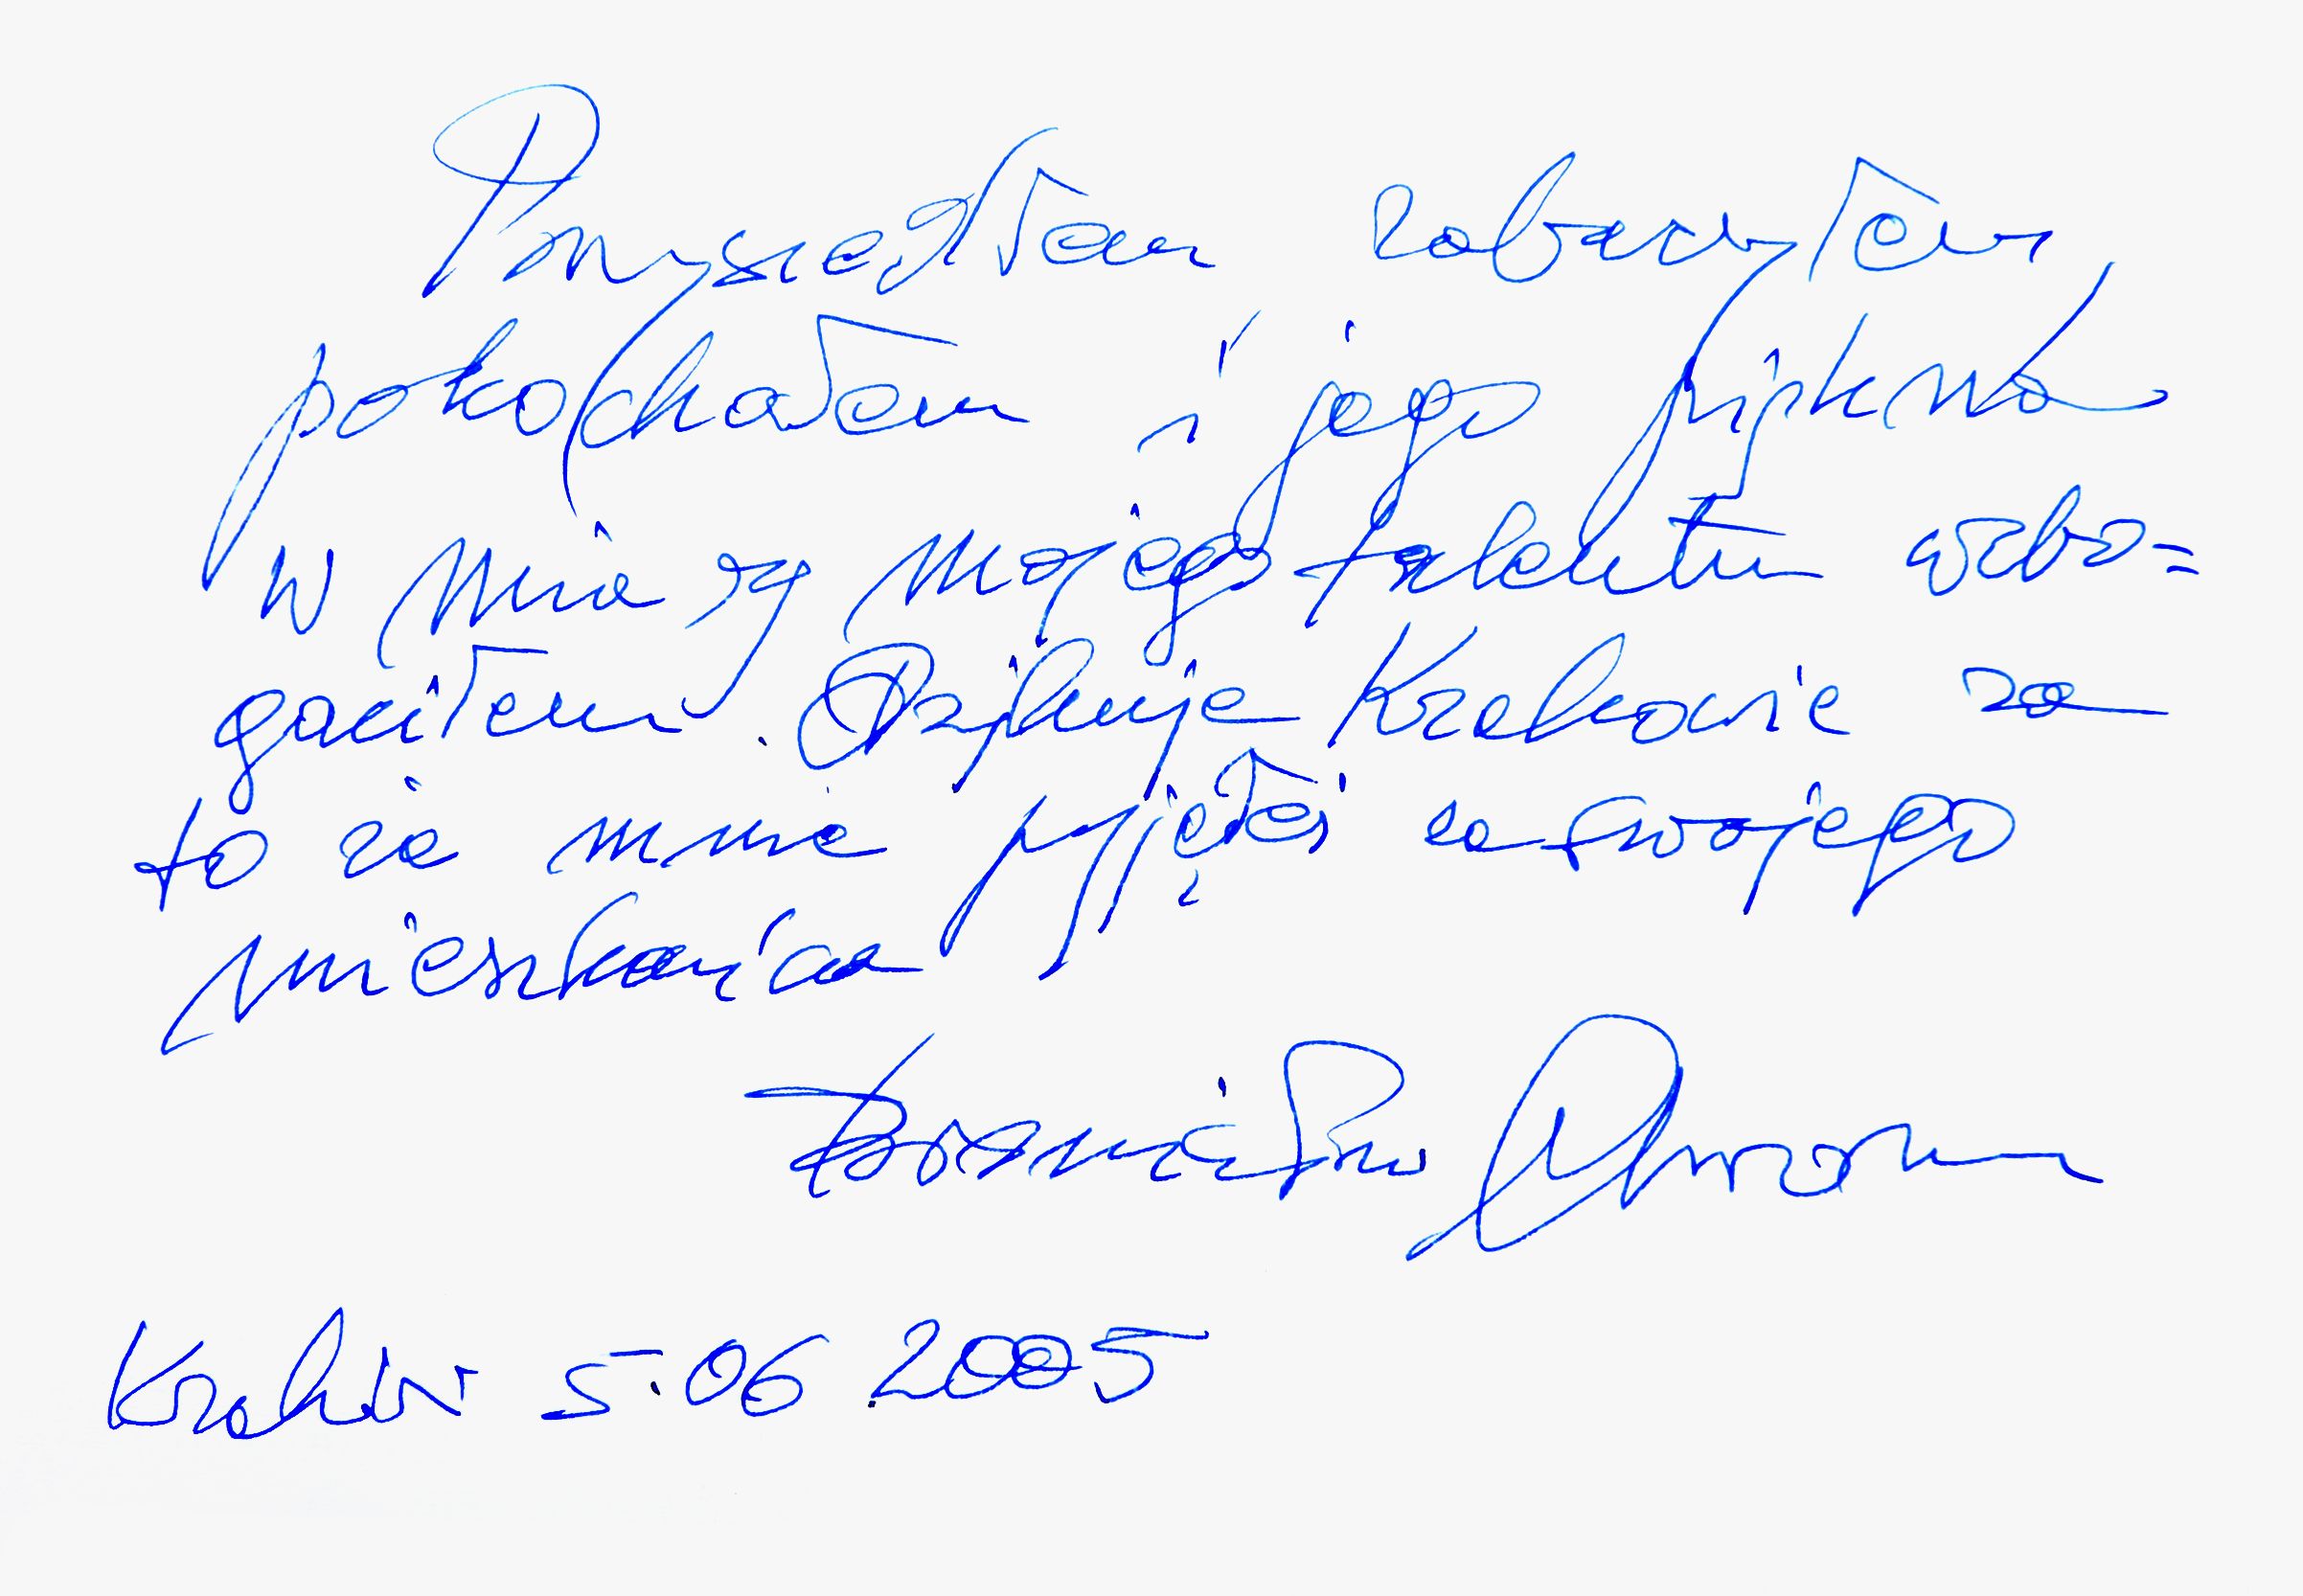 Przyszedłem zobaczyłem
pokochałem i jego piękno
w mnie są mojego talentu wzbo=
gaciłem. Dziękuję Krakowie za
to że mnie przyjąłeś za swojego
mieszkańca
Kraków 5.06.2005